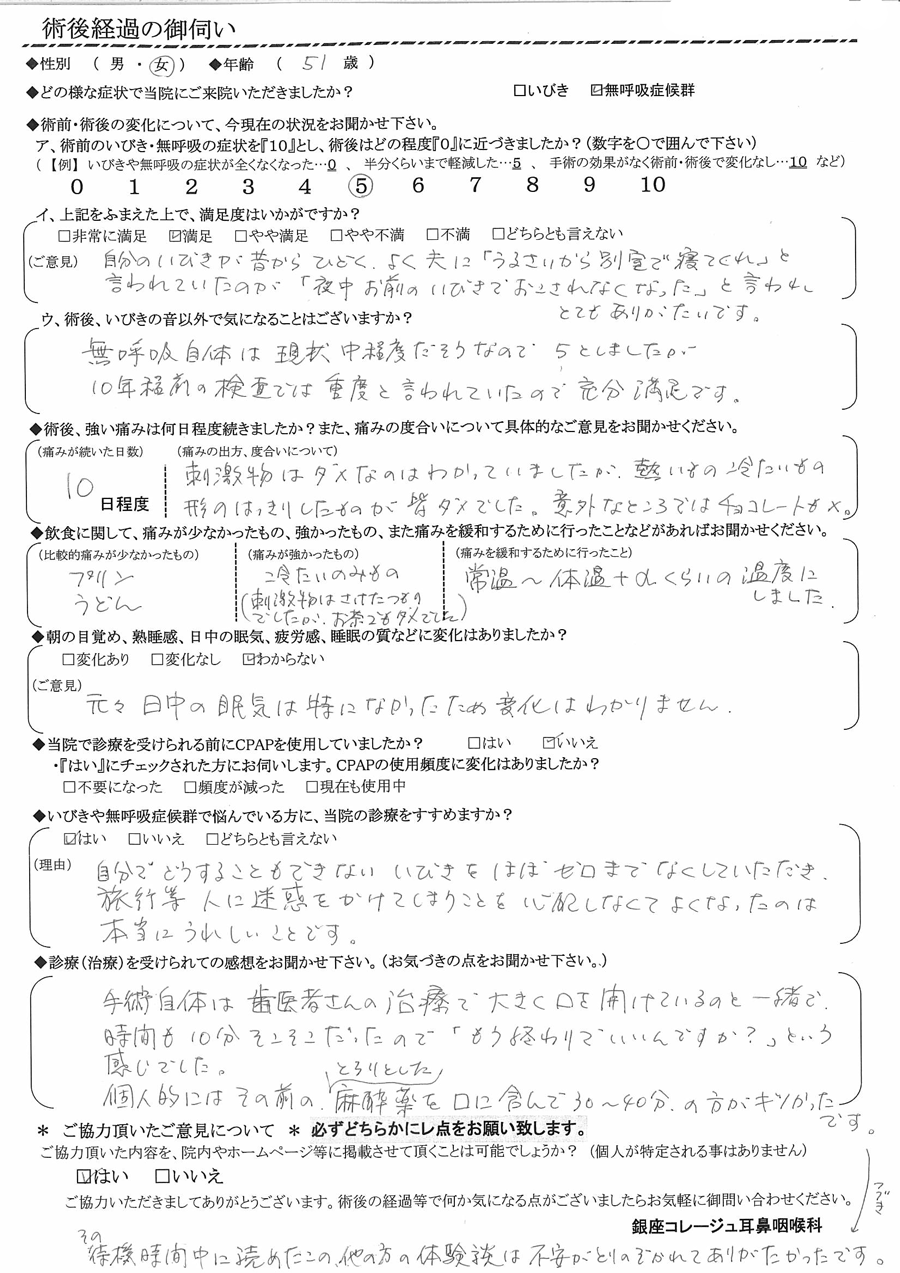 術後経過の御伺い
◆性別 （ 男 ・ 女 ） ◆年齢 （ 51 歳 ）
◆どの様な症状で当院にご来院いただきましたか？ □いびき ☑無呼吸症候群
◆術前・術後の変化について、今現在の状況をお聞かせ下さい。
ア、術前のいびき・無呼吸の症状を『10』とし、術後はどの程度『0』に近づきましたか？(数字を○で囲んで下さい)
（【例】いびきや無呼吸の症状が全くなくなった…0 、 半分くらいまで軽減した…5 、 手術の効果がなく術前・術後で変化なし…10 など）
0 1 2 3 4 5 6 7 8 9 10
イ、上記をふまえた上で、満足度はいかがですか？
□非常に満足 ☑満足 □やや満足 □やや不満 □不満 □どちらとも言えない
(ご意見) 自分のいびきが昔からひどく、よく夫に「うるさいから別室で寝てくれ」と
言われていたのが「夜中お前のいびきでおこされなくなった」と言われ
とてもありがたいです。
ウ、術後、いびきの音以外で気になることはございますか？
無呼吸自体は現状中程度だそうなので 5としましたが
10年程前の検査では重度と言われていたので充分満足です。
◆術後、強い痛みは何日程度続きましたか？また、痛みの度合いについて具体的なご意見をお聞かせください。
(痛みが続いた日数) (痛みの出方、度合いについて)
10 日程度
刺激物はダメなのはわかっていましたが、熱いもの冷たいもの
形のはっきりしたものが皆ダメでした。意外なところではチョコレートも×。
◆飲食に関して、痛みが少なかったもの、強かったもの、また痛みを緩和するために行ったことなどがあればお聞かせください。
(比較的痛みが少なかったもの) (痛みが強かったもの) (痛みを緩和するために行ったこと)
プリン
うどん
冷たいのみもの
(刺激物はさけたつもり
でしたが、お茶でもダメでした)
常温～体温+αくらいの温度に
しました。
◆朝の目覚め、熟睡感、日中の眠気、疲労感、睡眠の質などに変化はありましたか？
□変化あり □変化なし ☑わからない
(ご意見)
元々日中の眠気は特になかったため変化はわかりません。
◆当院で診療を受けられる前にCPAPを使用していましたか？ □はい ☑いいえ
・『はい』にチェックされた方にお伺いします。CPAPの使用頻度に変化はありましたか？
□不要になった □頻度が減った □現在も使用中
◆いびきや無呼吸症候群で悩んでいる方に、当院の診療をすすめますか？
☑はい □いいえ □どちらとも言えない
(理由) 自分でどうすることもできないいびきをほぼゼロまでなくしていただき、
旅行等人に迷惑をかけてしまうことを心配しなくてよくなったのは
本当にうれしいことです。
◆診療(治療)を受けられての感想をお聞かせ下さい。(お気づきの点をお聞かせ下さい。)
手術自体は歯医者さんの治療で大きく口を開けているのと一緒で、
時間も10分そこそこだったので「もう終わりでいいんですか？」という
感じでした。
とろりとした
個人的にはその前の、麻酔薬を口に含んで30～40分、の方がキツかった
です。
＊ ご協力頂いたご意見について ＊ 必ずどちらかにレ点をお願い致します。
ご協力頂いた内容を、院内やホームページ等に掲載させて頂くことは可能でしょうか？ (個人が特定される事はありません)
☑はい □いいえ
つづき
ご協力いただきましてありがとうございます。術後の経過等で何か気になる点がございましたらお気軽に御問い合わせください。
銀座コレージュ耳鼻咽喉科
その
待機時間中に読めたこの、他の方の体験談は不安がとりのぞかれてありがたかったです。